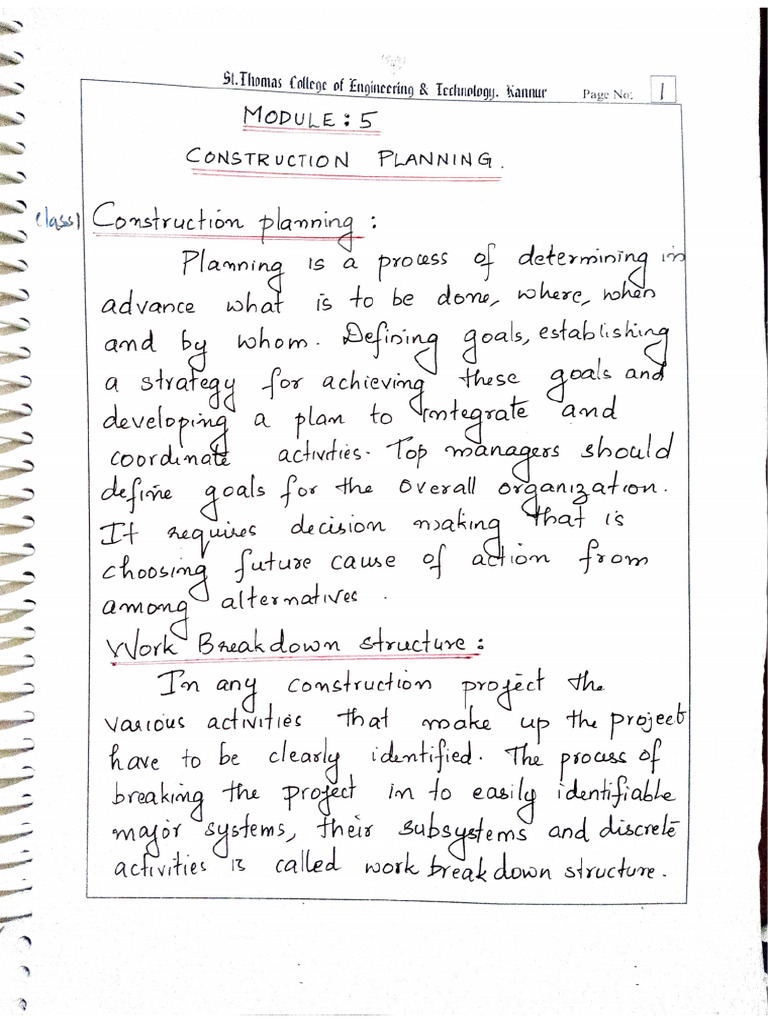 St.Thomas College of Engineering & Technology. Kannur Page No: 1
MODULE : 5
CONSTRUCTION PLANNING.
class 1 Construction planning :
Planning is a process of determining in
advance what is to be done, where, when
and by whom. Defining goals, establishing
a strategy for achieving these goals and
developing a plan to integrate and
coordinate activities. Top managers should
define goals for the overall organization.
It requires decision making that is
choosing future cause of action from
among alternatives.
Work Breakdown structure :
In any construction project the
various activities that make up the project
have to be clearly identified. The process of
breaking the project in to easily identifiable
major systems, their subsystems and discrete
activities is called work breakdown structure.